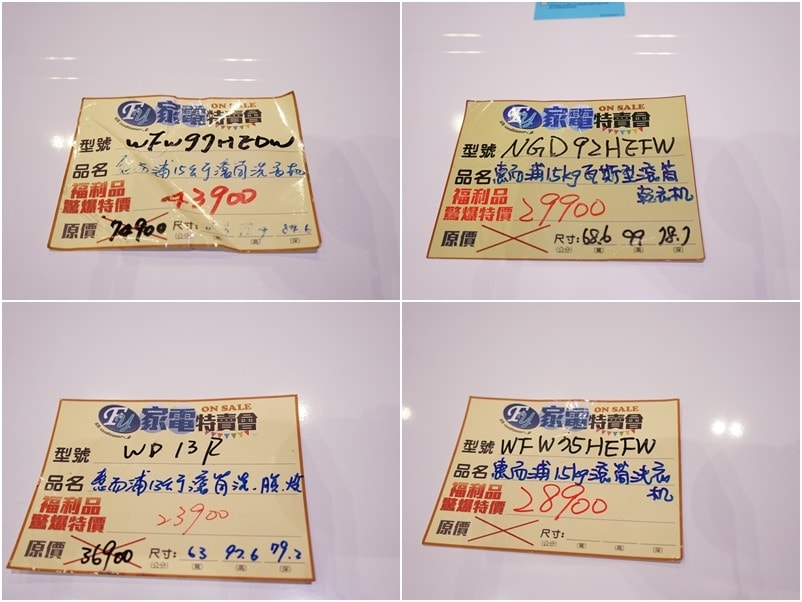 FU 家電特賣會 ON SALE
型號 WFW97HEDW
品名 惠而浦15公斤滾筒洗衣机
福利品
驚爆特價 43900
原價 74900 尺寸: (公分) (寬) (高) (深)
FU 家電特賣會 ON SALE
型號 NGD92HEFW
品名 惠而浦15kg瓦斯型滾筒
乾衣机
福利品
驚爆特價 29900
原價 尺寸: 68.6 99 78.7
(公分) (寬) (高) (深)
FU 家電特賣會 ON SALE
型號 WD13R
品名 惠而浦13公斤滾筒洗.脫.烘
福利品
驚爆特價 23900
原價 36900 尺寸: 63 92.6 79.2
(公分) (寬) (高) (深)
FU 家電特賣會 ON SALE
型號 WFW95HEFW
品名 惠而浦15kg滾筒洗衣
机
福利品
驚爆特價 28900
原價 尺寸:
(公分) (寬) (高) (深)